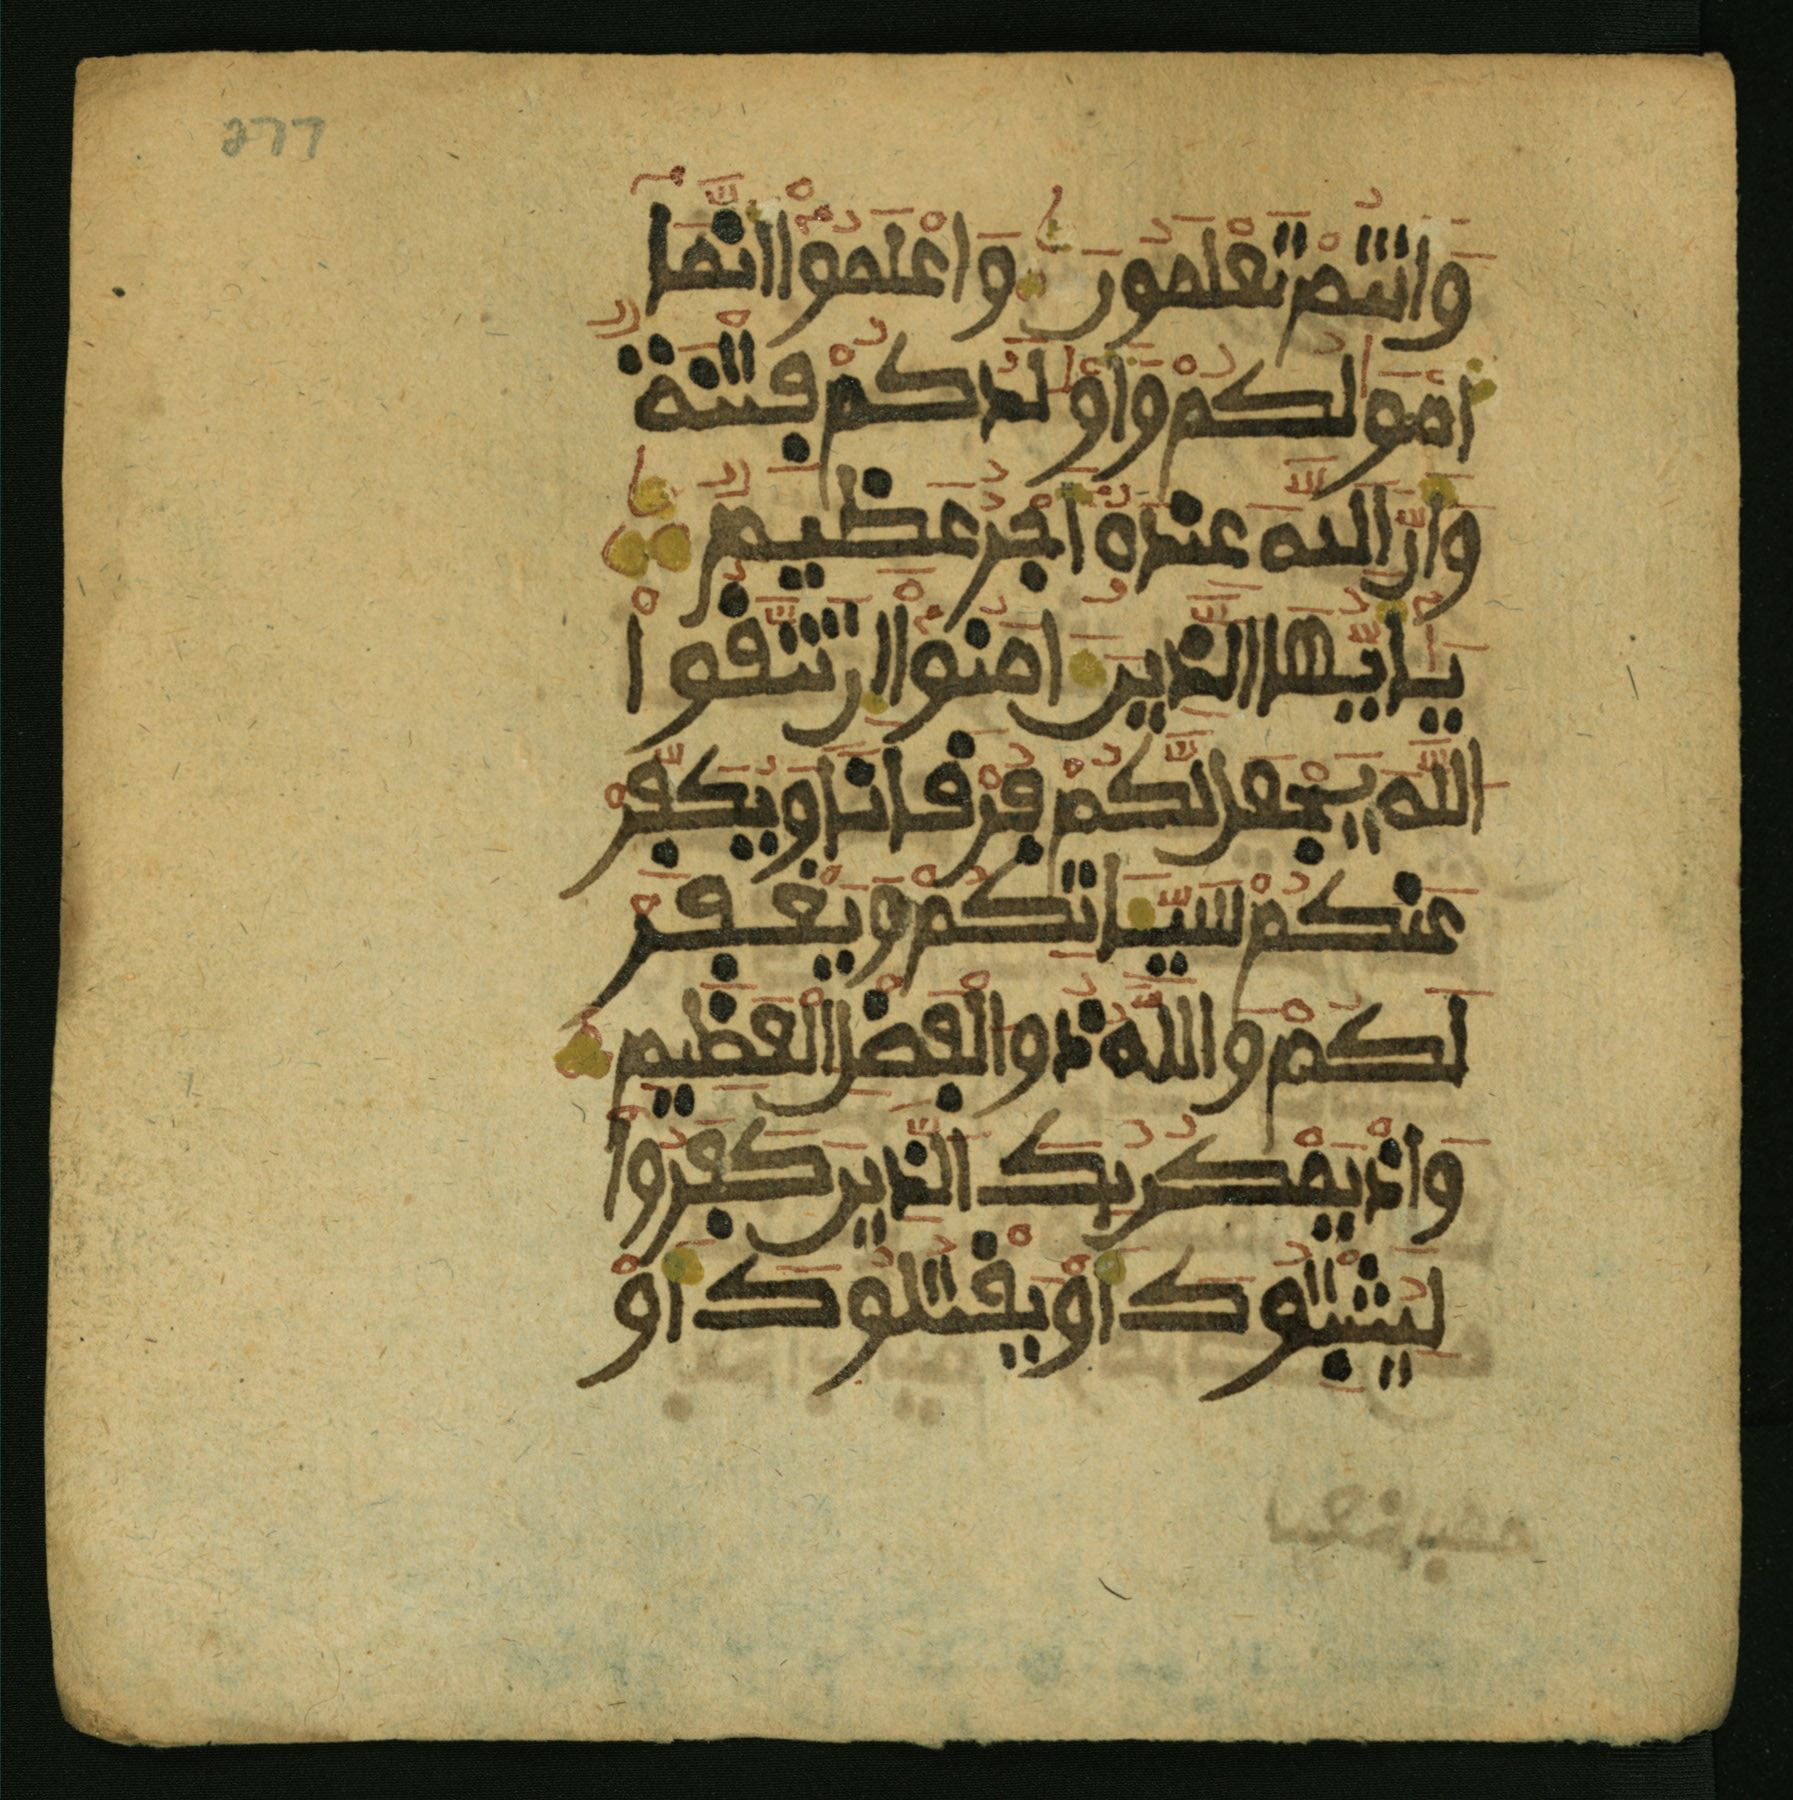 277
وَأَنتُمْ تَعْلَمُونَ وَاعْلَمُوا أَنَّمَا
أَمْوَٰلُكُمْ وَأَوْلَٰدُكُمْ فِتْنَةٌ
وَأَنَّ اللَّهَ عِندَهُ أَجْرٌ عَظِيمٌ
يَا أَيُّهَا الَّذِينَ ءَامَنُوا إِن تَتَّقُوا
اللَّهَ يَجْعَل لَّكُمْ فُرْقَانًا وَيُكَفِّرْ
عَنكُمْ سَيِّـَٔاتِكُمْ وَيَغْفِرْ
لَكُمْ وَاللَّهُ ذُو الْفَضْلِ الْعَظِيمِ
وَإِذْ يَمْكُرُ بِكَ الَّذِينَ كَفَرُوا
لِيُثْبِتُوكَ أَوْ يَقْتُلُوكَ أَوْ